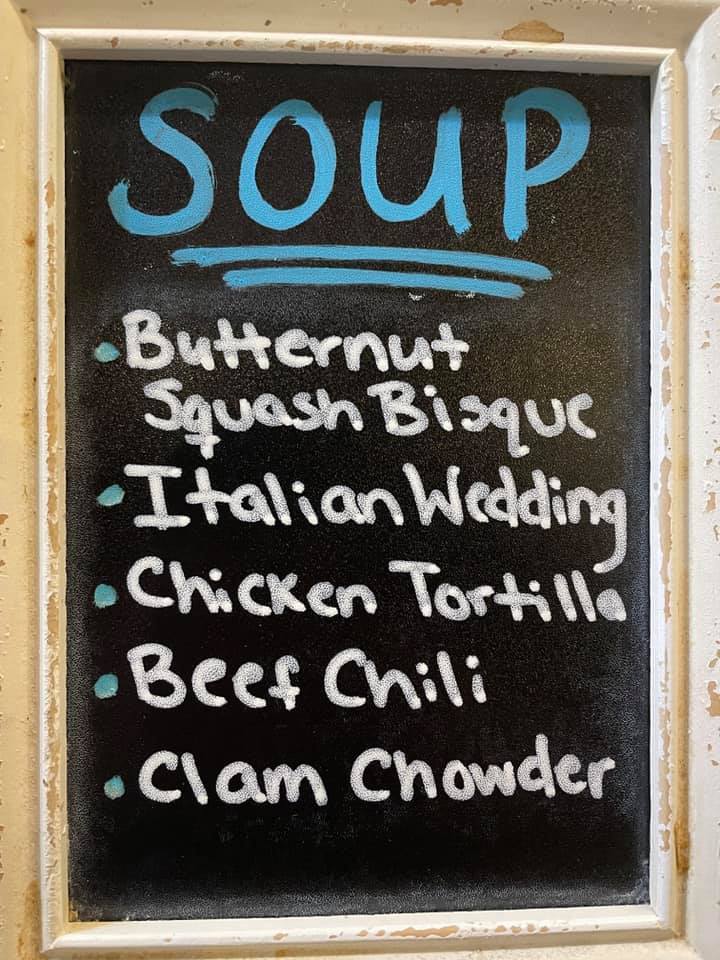 SOUP
• Butternut
Squash Bisque
• Italian Wedding
• Chicken Tortilla
• Beef Chili
• Clam Chowder